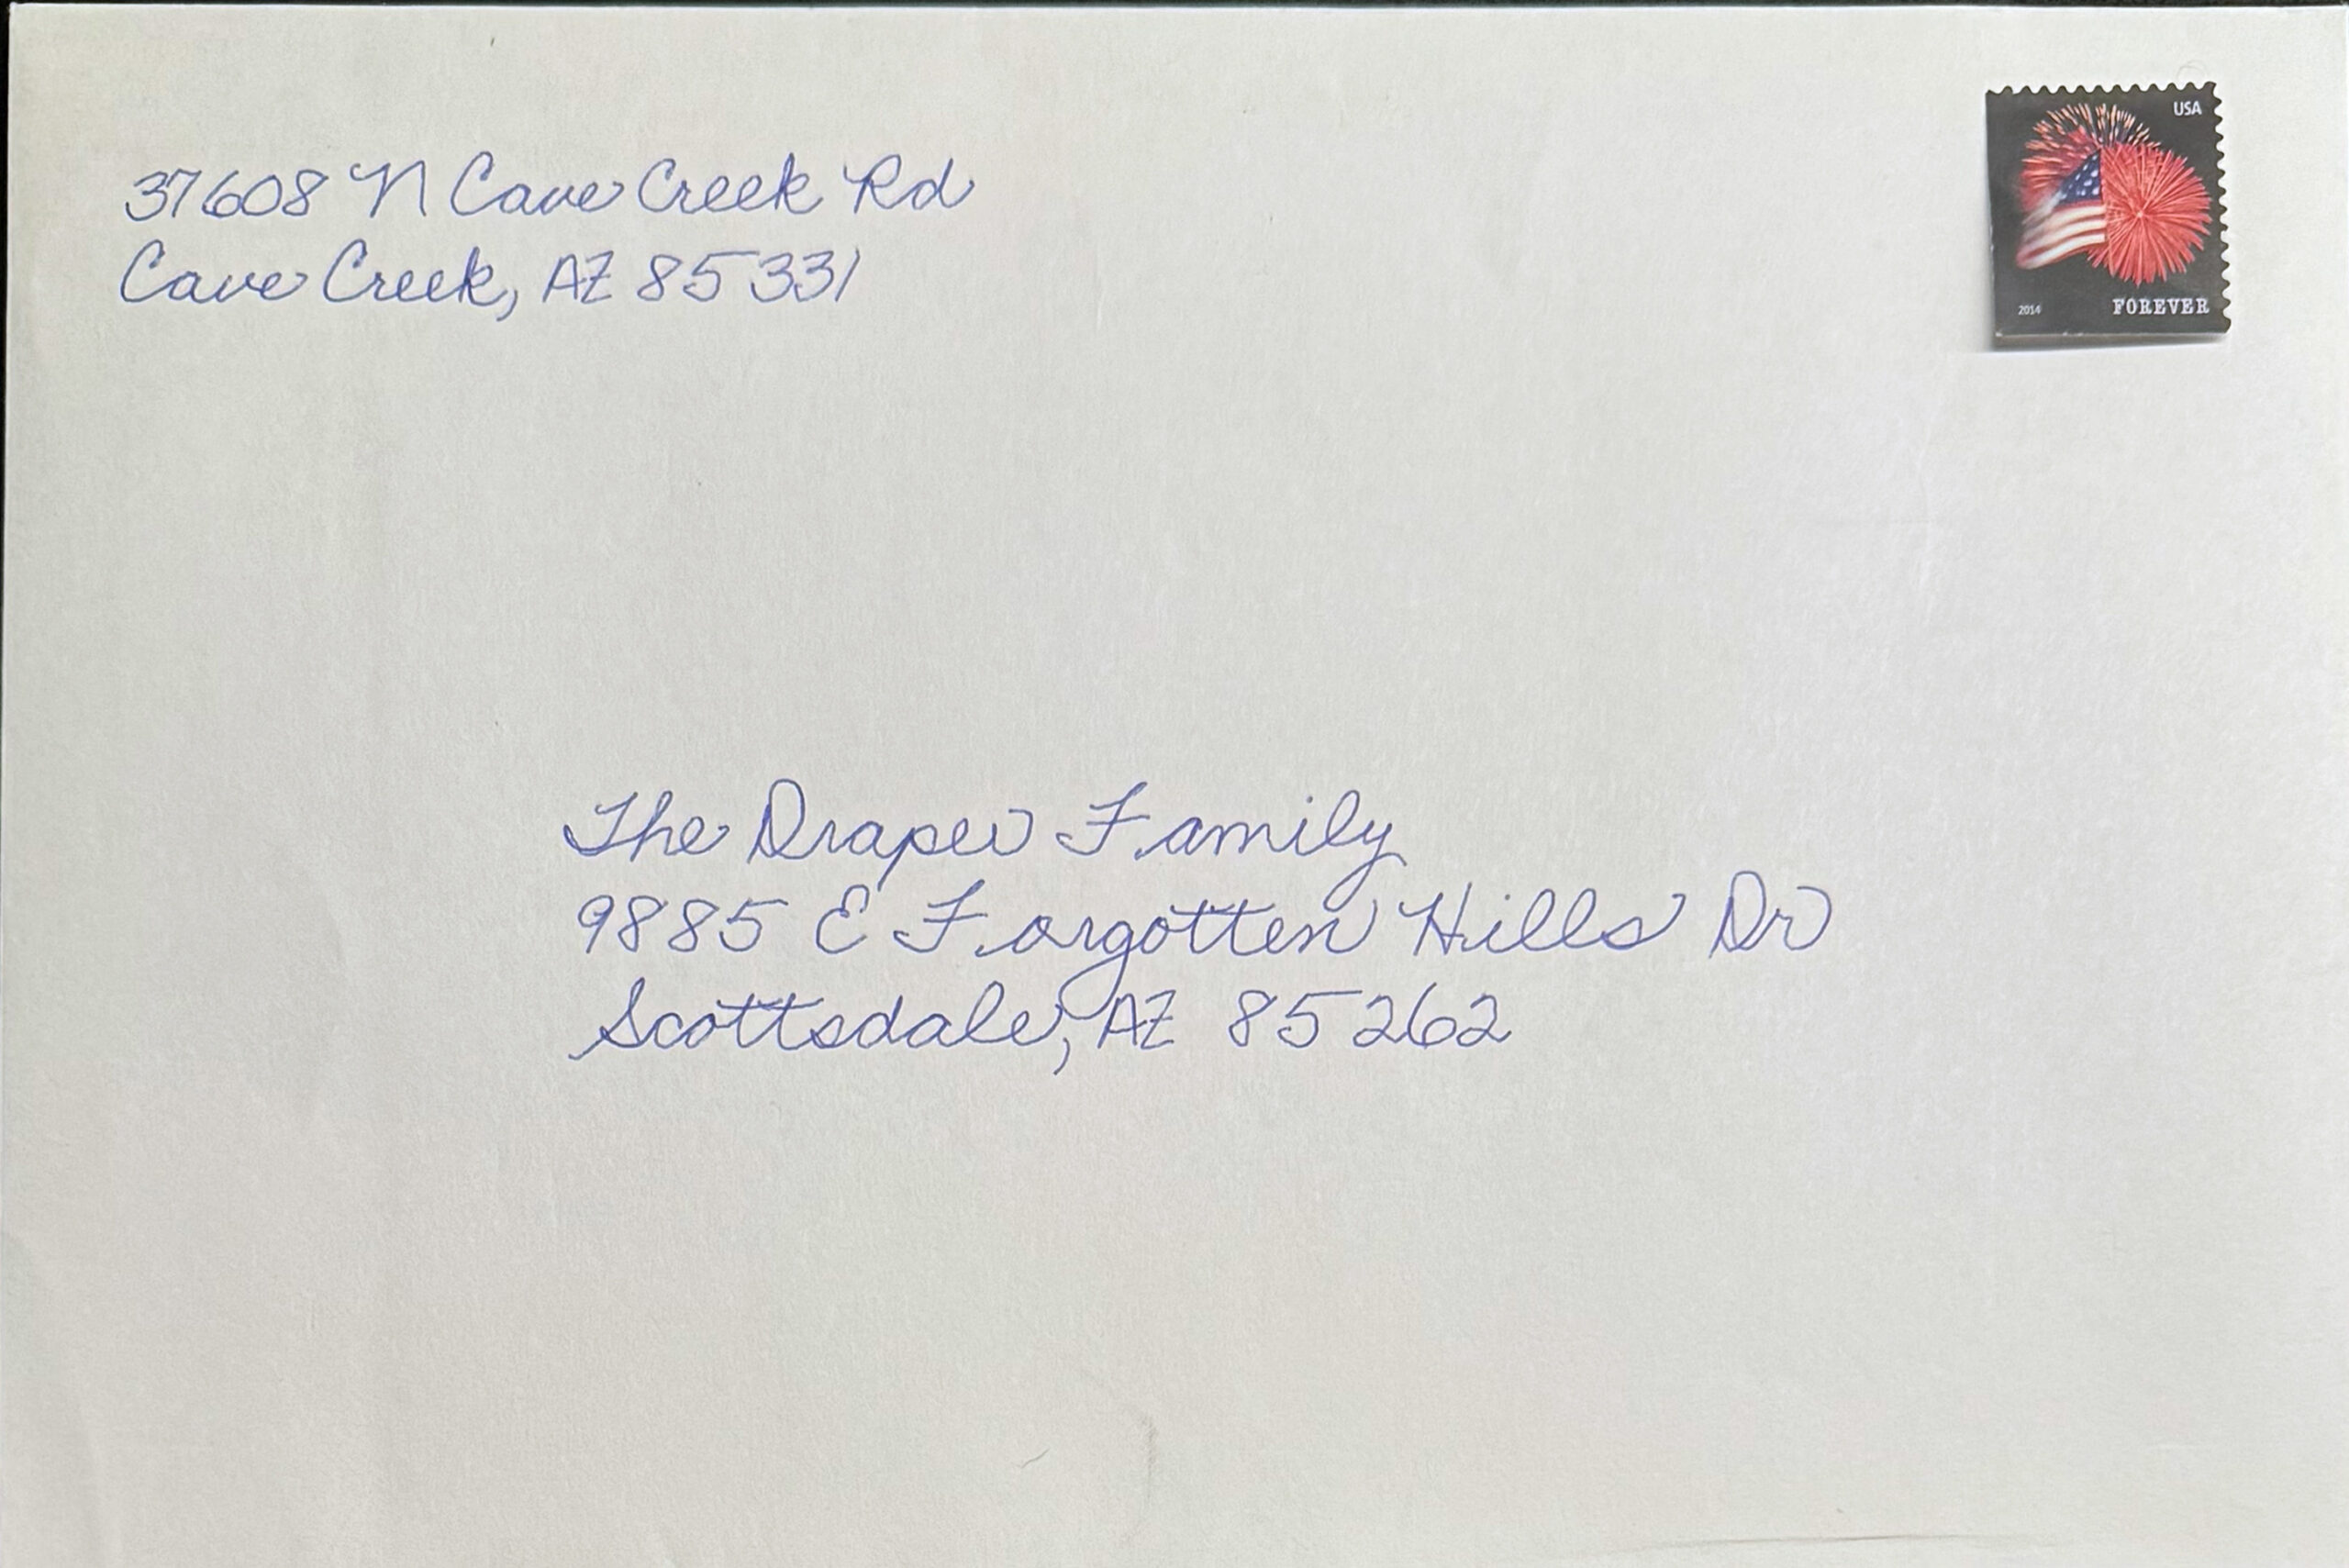 37608 N Cave Creek Rd
Cave Creek, AZ 85331
USA
2014 FOREVER
The Draper Family
9885 E Forgotten Hills Dr
Scottsdale, AZ 85262